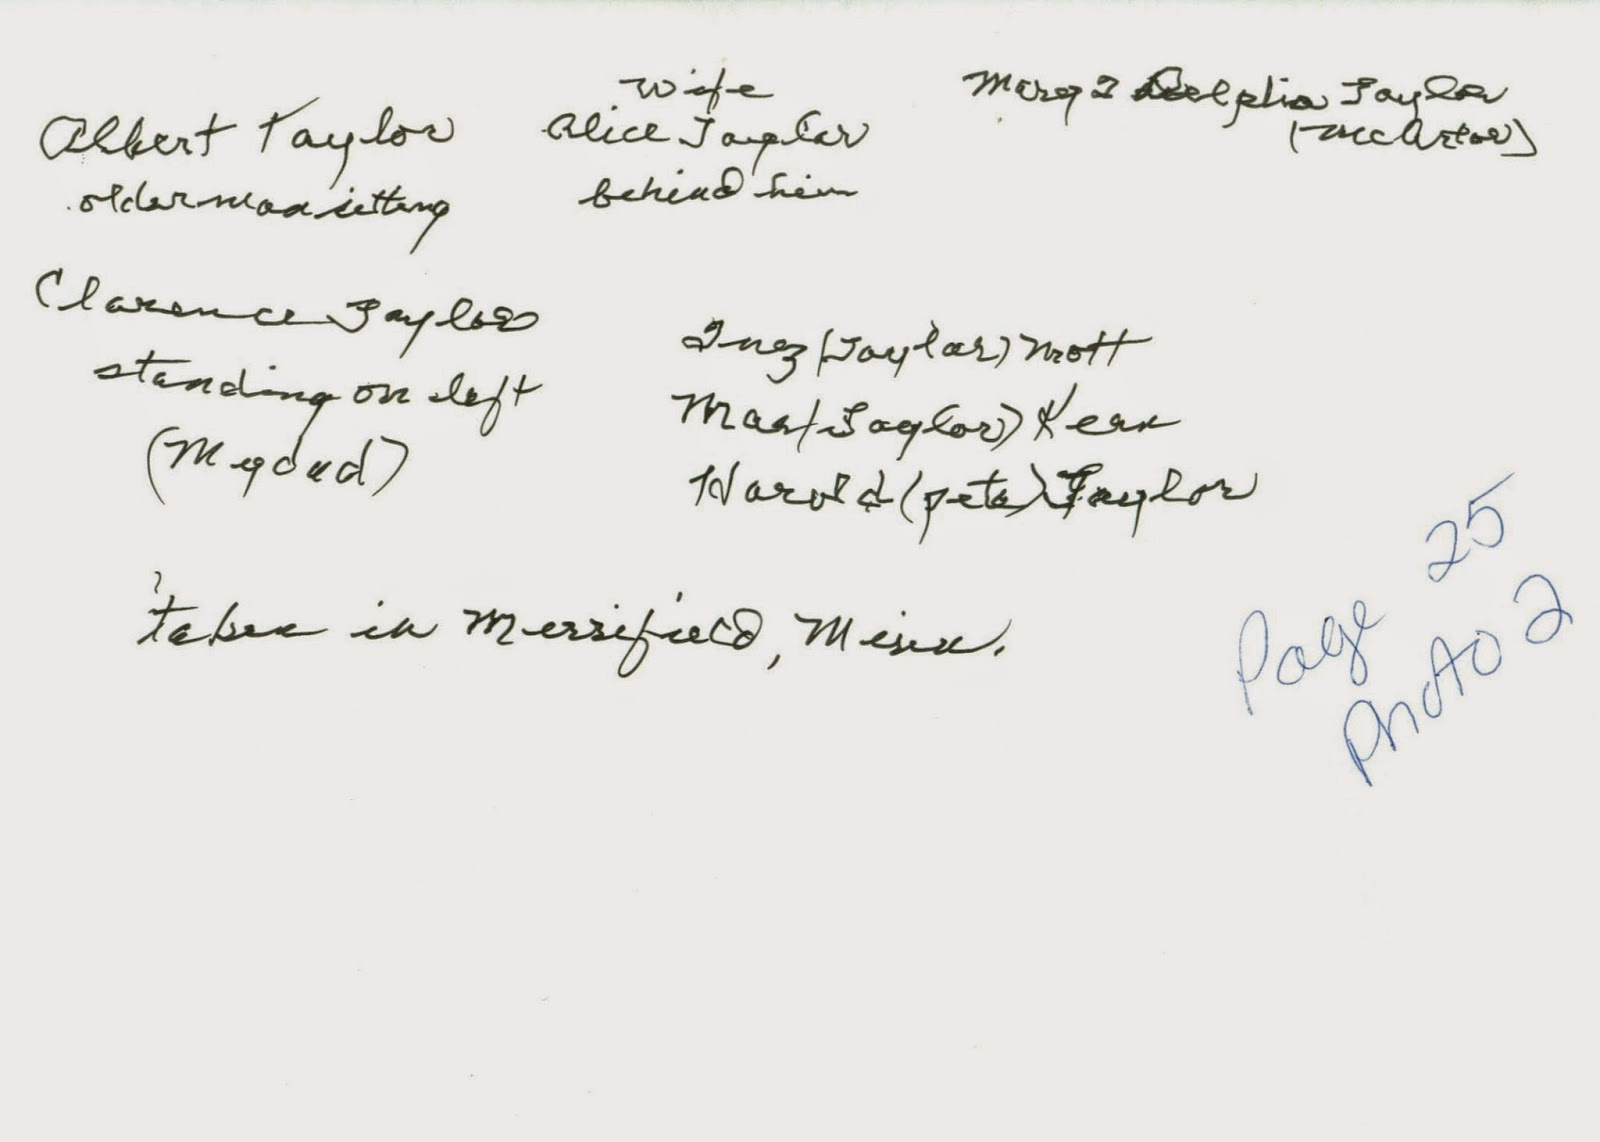 Albert Taylor
older man sitting
wife
Alice Taylor
behind him
Mary Delphia Taylor
(McArtor)
Clarence Taylor
standing on left
(My dad)
Inez (Taylor) Mott
Mae (Taylor) Kern
Harold (pete) Taylor
taken in Merrifield, Minn.
Page 25
Photo 2